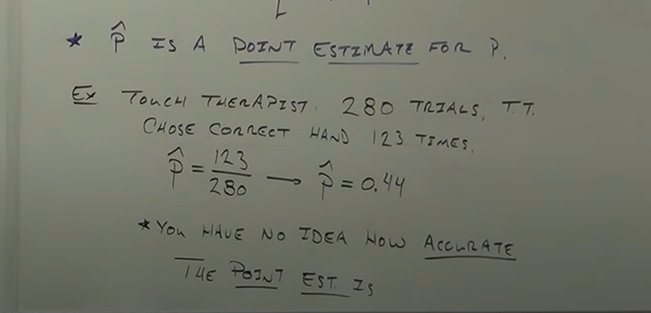 * p̂ IS A POINT ESTIMATE FOR P.
Ex TOUCH THERAPIST. 280 TRIALS, T.T.
CHOSE CORRECT HAND 123 TIMES.
p̂ = 123/280 → p̂ = 0.44
* YOU HAVE NO IDEA HOW ACCURATE
THE POINT EST. IS